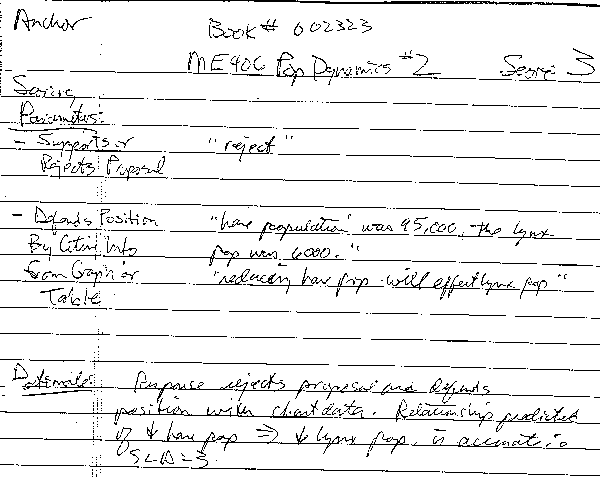 Anchor
Book # 002323
ME406 Pop Dynamics #2 Score: 3
Scoring
Parameters:
- Supports or
Rejects Proposal
"reject"
- Defends Position
By Citing Info
from Graph or
Table
"hare population was 95,000, the lynx
pop was 6000."
"reducing hare pop will effect lynx pop"
Rationale: Response rejects proposal and defends
position with chart data. Relationship predicted
of ↓ hare pop ⇒ ↓ lynx pop. is accurate ∴
= 3